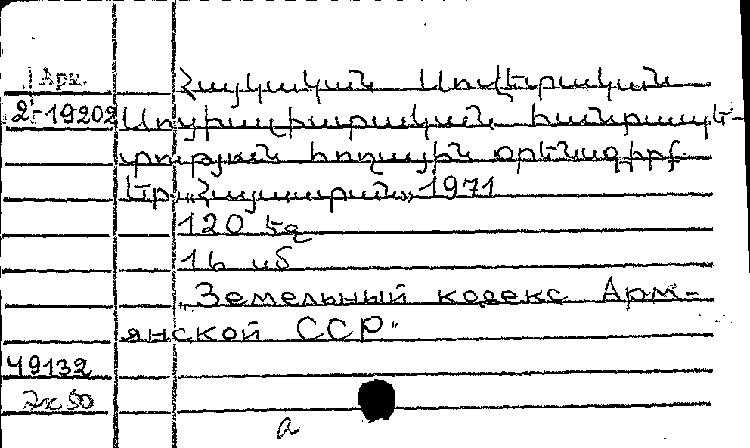 Арм.
Հայկական Սովետական
2-19202 Սոցիալիստական հանրապե-
տության հողային օրենսգիրք
Եր., «Հայաստան» 1971
120 էջ
16 սմ
„Земельный кодекс Арм-
янской ССР"
49132
2к50
а